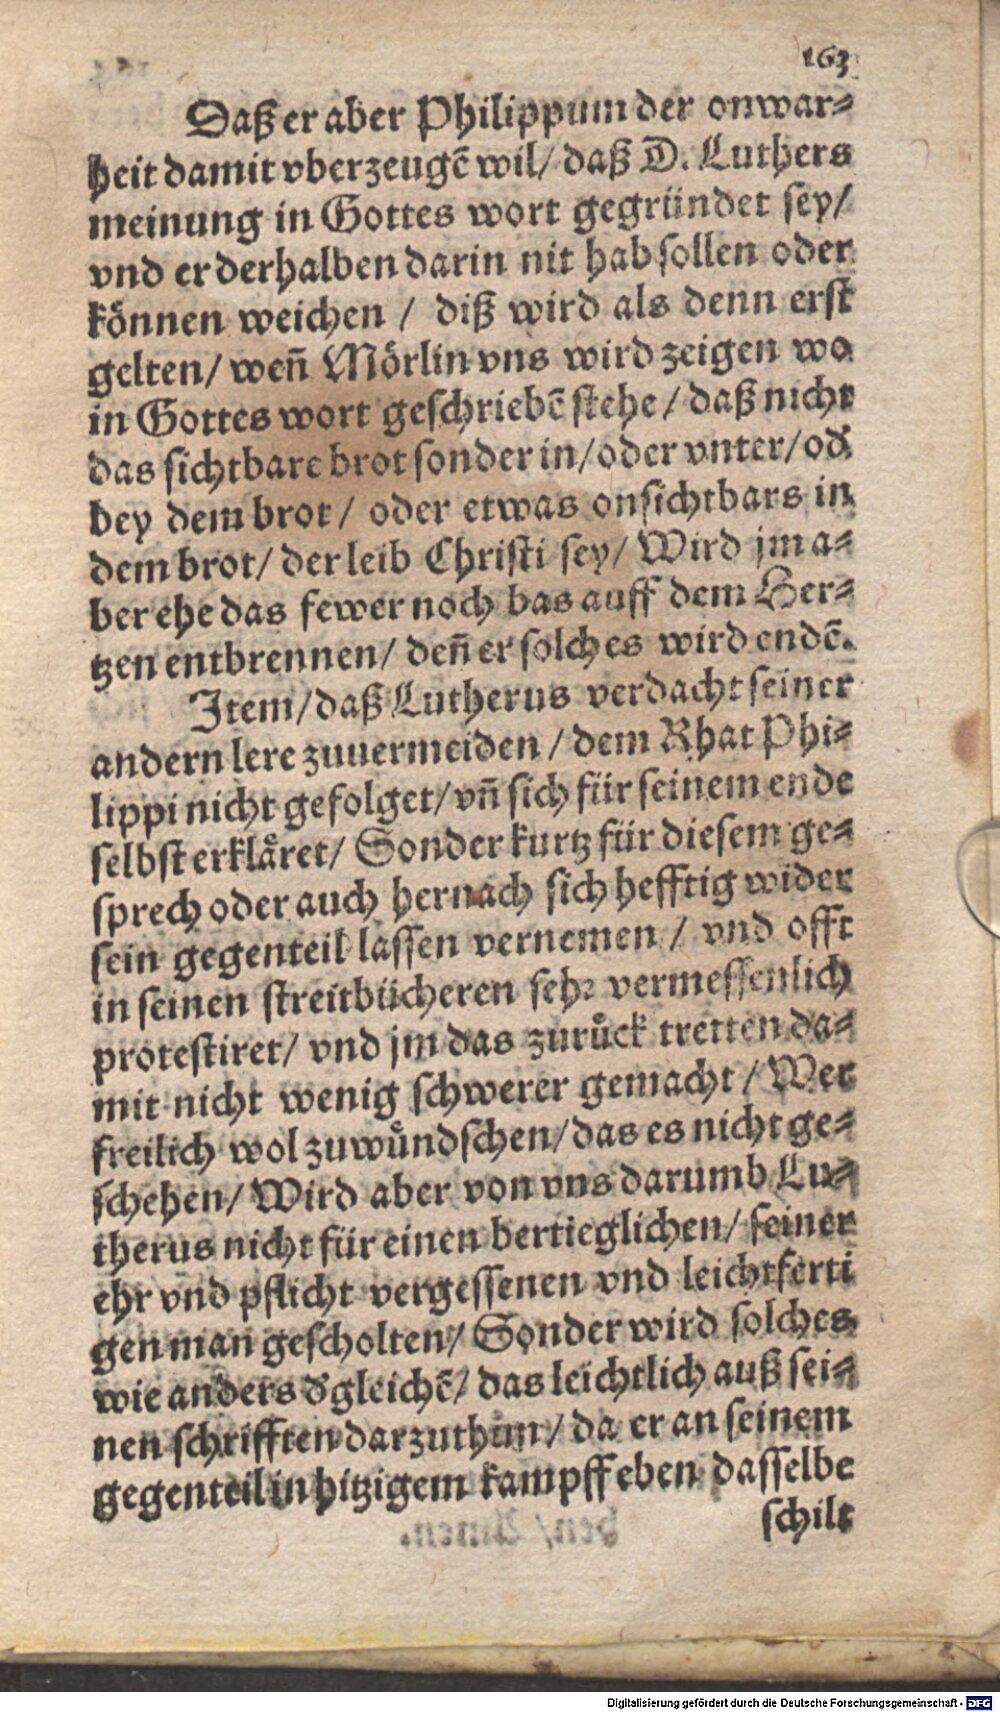 163
Daß er aber Philippum der onwar⸗
heit damit vberzeugē wil/ daß D. Luthers
meinung in Gottes wort gegründet sey/
vnd er derhalben darin nit hab sollen oder
können weichen / diß wird als denn erst
gelten/ weñ Mörlin vns wird zeigen wo
in Gottes wort geschriebē stehe / daß nicht
das sichtbare brot sonder in/oder vnter/ od̕
bey dem brot / oder etwas onsichtbars in
dem brot/ der leib Christi sey/ Wird jm a⸗
ber ehe das fewer noch bas auff dem Her⸗
tzen entbrennen/ deñ er solches wird endē.
Item/daß Lutherus verdacht seiner
andern lere zuuermeiden / dem Rhat Phi⸗
lippi nicht gefolget/vñ sich für seinem ende
selbst erkläret/ Sonder kurtz für diesem ge⸗
sprech oder auch hernach sich hefftig wider
sein gegenteil lassen vernemen / vnd offt
in seinen streitbücheren sehr vermessenlich
protestiret/ vnd jm das zurůck tretten da⸗
mit nicht wenig schwerer gemacht / Wer
freilich wol zuwůndschen/das es nicht ge⸗
schehen/ Wird aber von vns darumb Lu⸗
therus nicht für einen bertieglichen/ seiner
ehr vnd pflicht vergessenen vnd leichtferti
gen man gescholten/ Sonder wird solches
wie anders d̕gleichē/ das leichtlich auß sei⸗
nen schrifften darzuthun/ da er an seinem
gegenteil in hitzigem kampff eben dasselbe
schilt
Digitalisierung gefördert durch die Deutsche Forschungsgemeinschaft - DFG